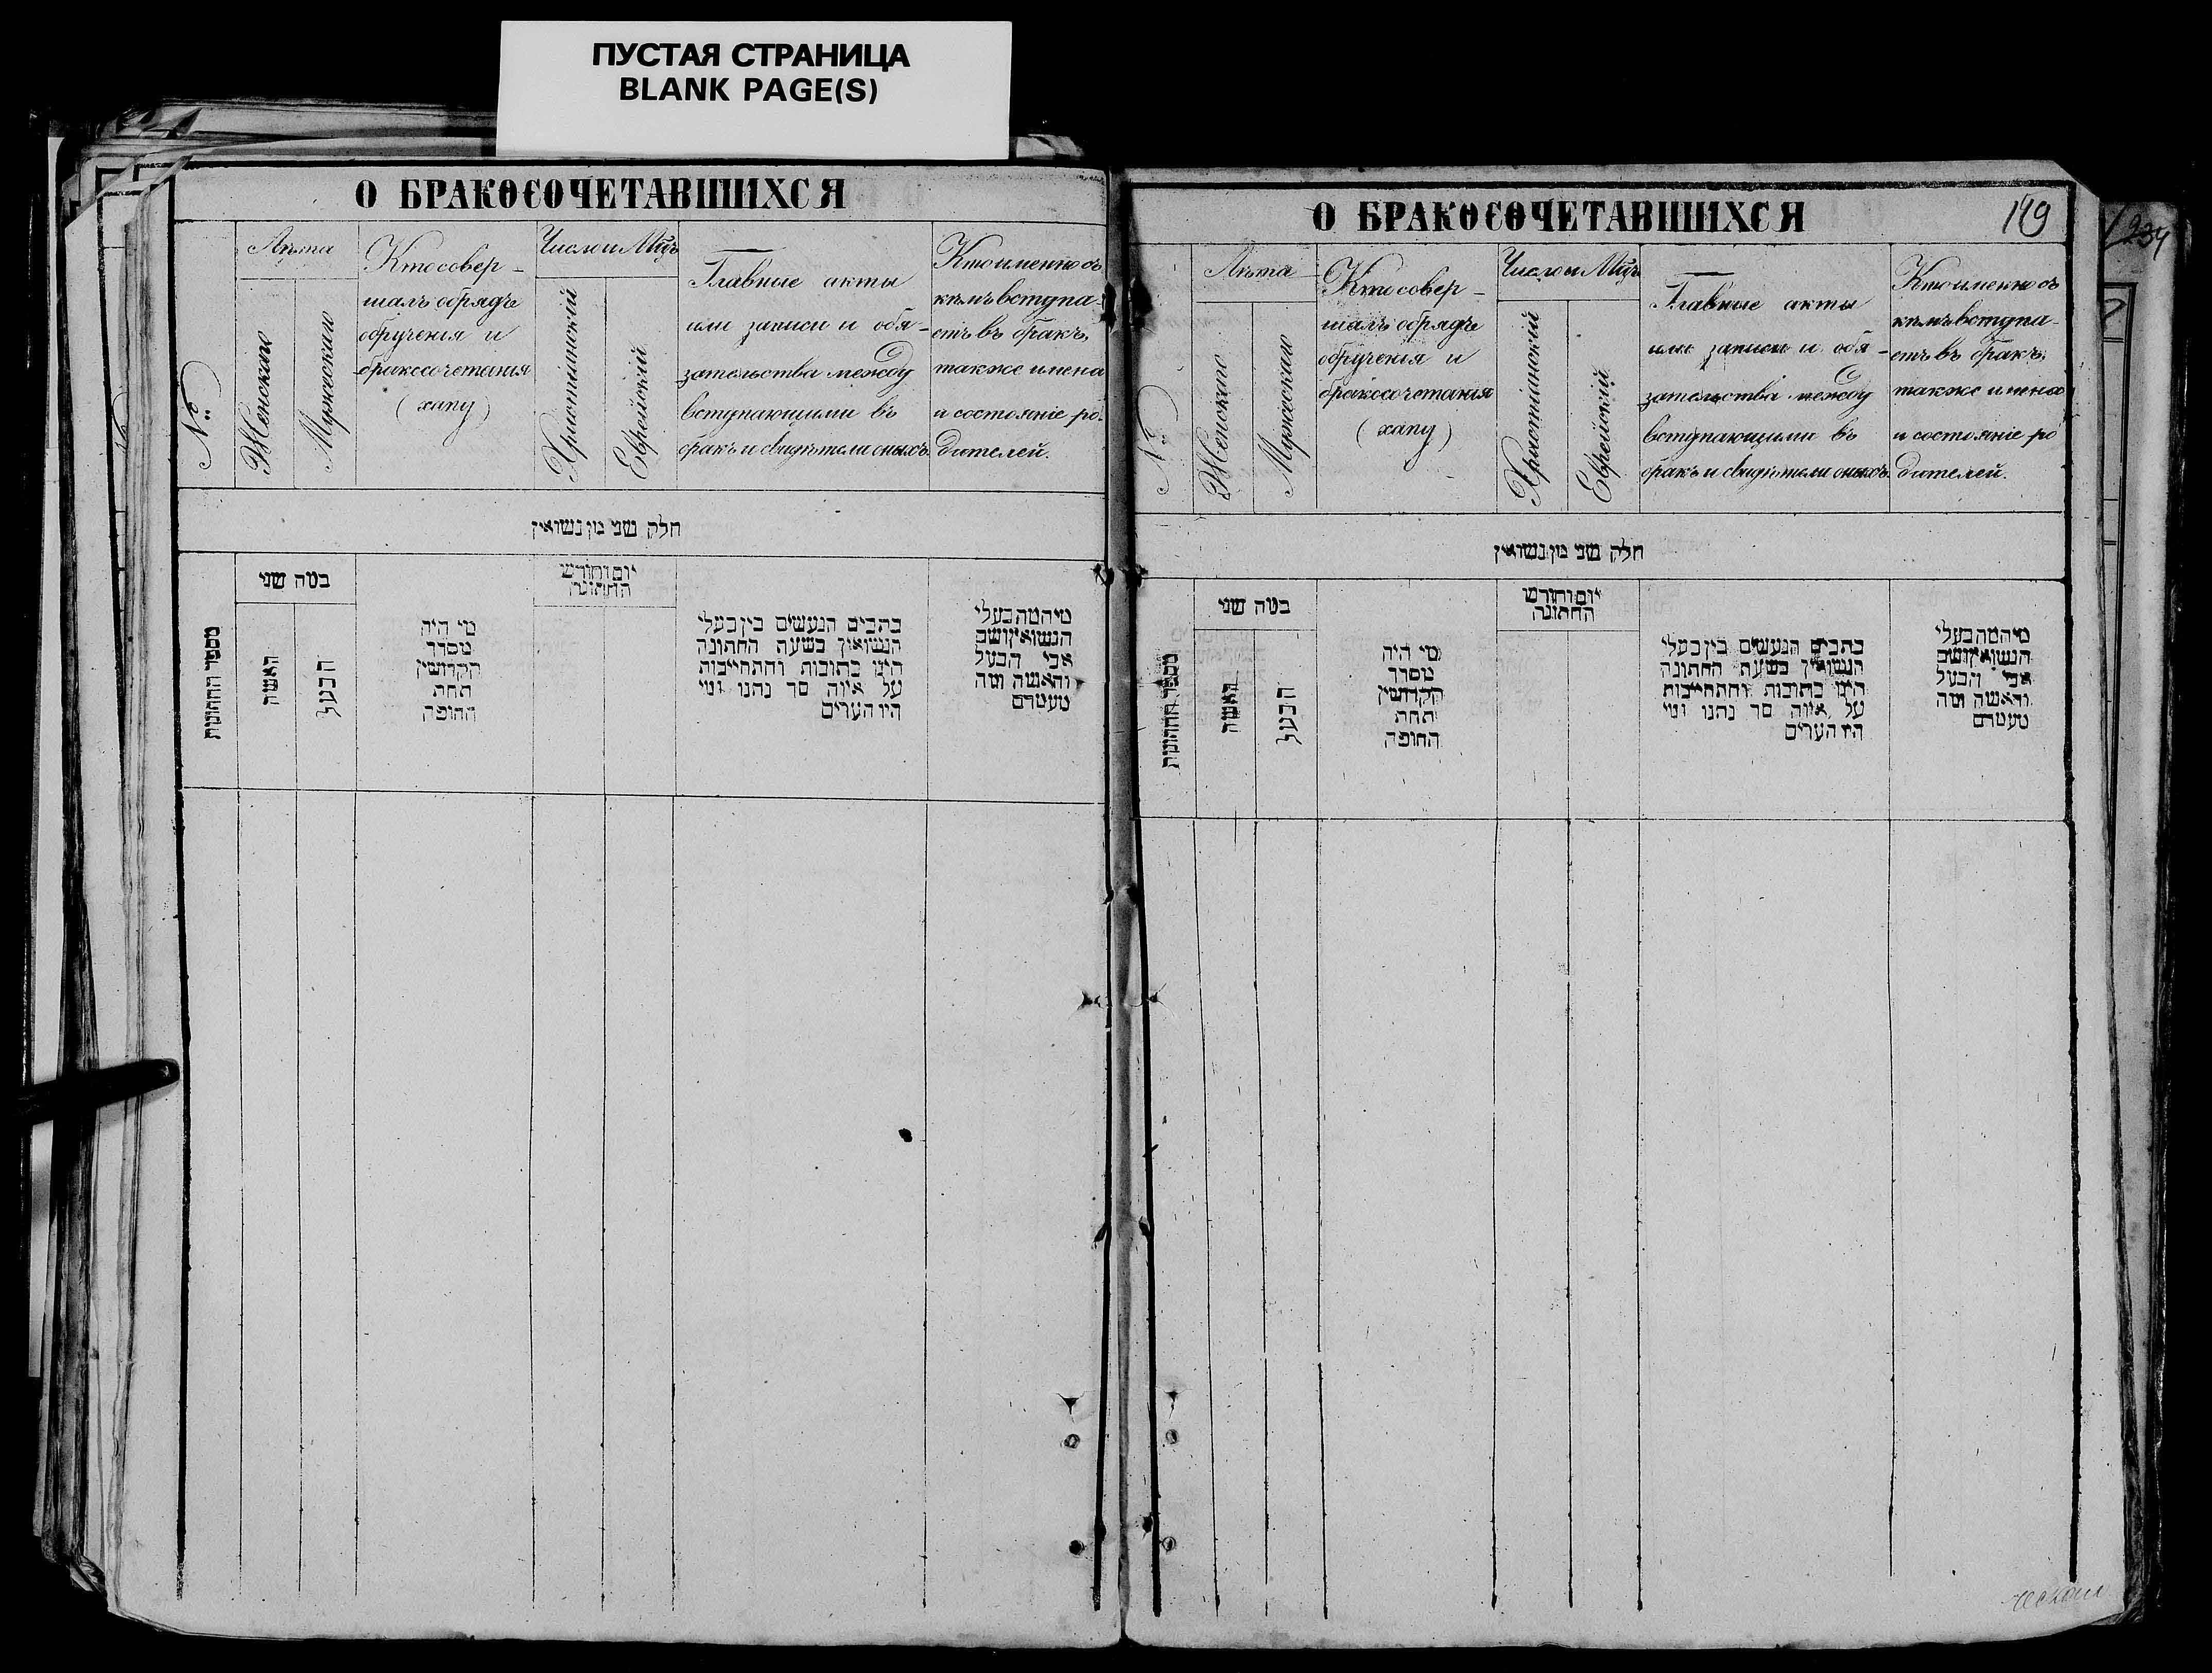 ПУСТАЯ СТРАНИЦА
BLANK PAGE(S)
О БРАКОСОЧЕТАВШИХСЯ
№
Лѣта
Женскаго
Мужескаго
Кто совер-
шалъ обрядъ
обрученія и
бракосочетанія
(хапу)
Число и Мцъ
Христіанскій
Еврейскій
Главные акты
или записи и обя-
зательства между
вступающими въ
бракъ и свидѣтели оныхъ.
Кто именно съ
кѣмъ вступа-
етъ въ бракъ,
также имена
и состояніе ро-
дителей.
חלק שני מן נשואין
מספר החתונות
במה שני
האשה
הבעל
מי היה
מסדר
הקדושין
תחת
החופה
יום וחודש
החתונה
כתבים הנעשים בין בעלי
הנשואין בשעת החתונה
היינו כתובות והתחייבות
על איזה סך נתנו ומי
היו העדים
מי המה בעלי
הנשואין ושם
אבי הבעל
והאשה ומה
מעמדם
О БРАКОСОЧЕТАВШИХСЯ
179
234
№
Лѣта
Женскаго
Мужескаго
Кто совер-
шалъ обрядъ
обрученія и
бракосочетанія
(хапу)
Число и Мцъ
Христіанскій
Еврейскій
Главные акты
или записи и обя-
зательства между
вступающими въ
бракъ и свидѣтели оныхъ.
Кто именно съ
кѣмъ вступа-
етъ въ бракъ,
также имена
и состояніе ро
дителей.
חלק שני מן נשואין
מספר החתונות
במה שני
האשה
הבעל
מי היה
מסדר
הקדושין
תחת
החופה
יום וחודש
החתונה
כתבים הנעשים בין בעלי
הנשואין בשעת החתונה
היינו כתובות והתחייבות
על איזה סך נתנו ומי
היו העדים
מי המה בעלי
הנשואין ושם
אבי הבעל
והאשה ומה
מעמדם